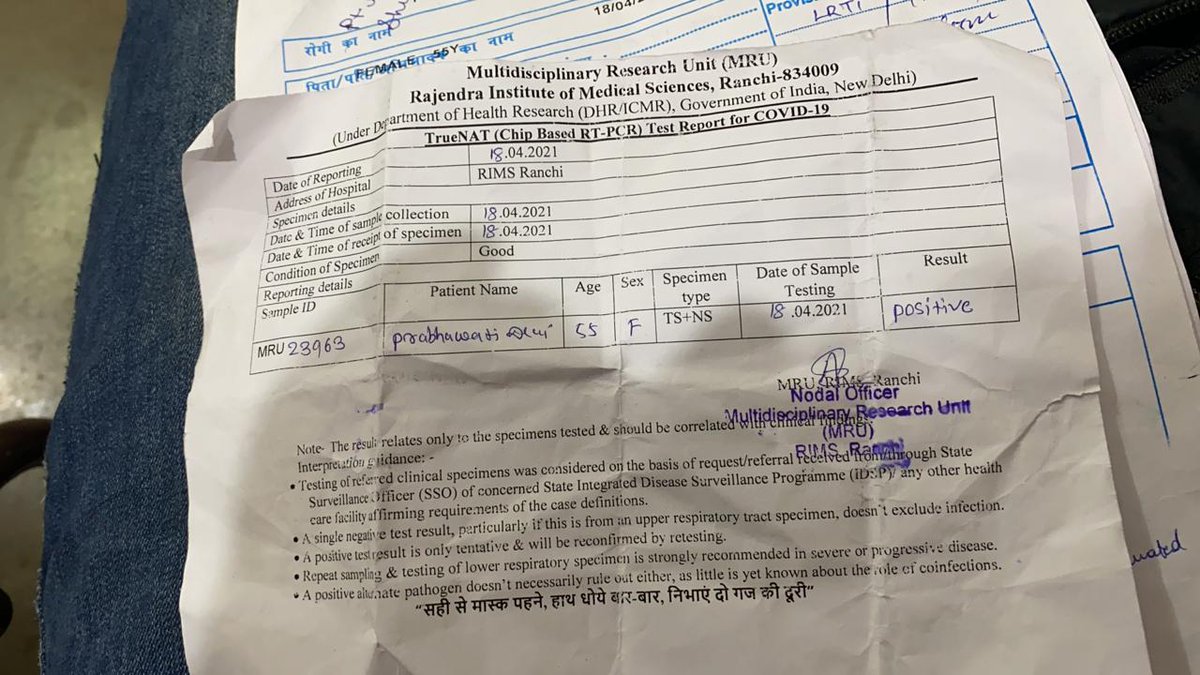 18/04/
Provis
LRTI
रोगी का नाम
पिता/ का नाम
FEMALE 55Y
Multidisciplinary Research Unit (MRU)
Rajendra Institute of Medical Sciences, Ranchi-834009
(Under Department of Health Research (DHR/ICMR), Government of India, New Delhi)
TrueNAT (Chip Based RT-PCR) Test Report for COVID-19
Date of Reporting 18.04.2021
Address of Hospital RIMS Ranchi
Specimen details
Date & Time of sample collection 18.04.2021
Date & Time of receipt of specimen 18.04.2021
Condition of Specimen Good
Reporting details
Sample ID Patient Name Age Sex Specimen type Date of Sample Testing Result
MRU 23963 Prabhawati 55 F TS+NS 18.04.2021 positive
MRU, RIMS, Ranchi
Nodal Officer
Multidisciplinary Research Unit
(MRU)
RIMS, Ranchi
Note- The result relates only to the specimens tested & should be correlated with clinical findings.
Interpretation guidance: -
• Testing of referred clinical specimens was considered on the basis of request/referral received from/through State
Surveillance Officer (SSO) of concerned State Integrated Disease Surveillance Programme (IDSP)/ any other health
care facility affirming requirements of the case definitions.
• A single negative test result, particularly if this is from an upper respiratory tract specimen, doesn't exclude infection.
• A positive test result is only tentative & will be reconfirmed by retesting.
• Repeat sampling & testing of lower respiratory specimen is strongly recommended in severe or progressive disease.
• A positive alternate pathogen doesn't necessarily rule out either, as little is yet known about the role of coinfections.
"सही से मास्क पहने, हाथ धोये बार-बार, निभाएं दो गज की दूरी"